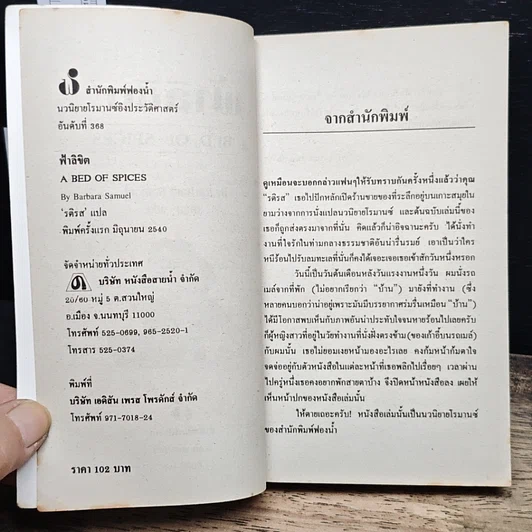 สำนักพิมพ์ฟองน้ำ
นวนิยายโรมานซ์อิงประวัติศาสตร์
อันดับที่ 368
ฟ้าลิขิต
A BED OF SPICES
By Barbara Samuel
'รติรส' แปล
พิมพ์ครั้งแรก มิถุนายน 2540
จัดจำหน่ายทั่วประเทศ
บริษัท หนังสือสายน้ำ จำกัด
20/60 หมู่ 5 ต.สวนใหญ่
อ.เมือง จ.นนทบุรี 11000
โทรศัพท์ 525-0699, 965-2520-1
โทรสาร 525-0374
พิมพ์ที่
บริษัท เอดิสัน เพรส โพรดักส์ จำกัด
โทรศัพท์ 971-7018-24
ราคา 102 บาท
จากสำนักพิมพ์
ดูเหมือนจะบอกกล่าวแฟนๆให้รับทราบกันครั้งหนึ่งแล้วว่าคุณ
"รติรส" เธอไปปักหลักเปิดร้านขายของที่ระลึกอยู่บนเกาะสมุยใน
ยามว่างจากการนั่งแปลนวนิยายโรมานซ์ และต้นฉบับเล่มนี้ของ
เธอก็ถูกส่งตรงมาจากที่นั่น คิดแล้วก็น่าอิจฉานะครับ ได้นั่งทำ
งานที่ใจรักในท่ามกลางธรรมชาติอันน่ารื่นรมย์ เอาเป็นว่าใคร
หนีร้อนไปรับลมทะเลที่นั่นก็คงได้เจอะเจอเธอเข้าสักวันหนึ่งหรอก
วันนี้เป็นวันต้นเดือนหลังวันแรงงานหนึ่งวัน ผมนั่งรถ
เมล์จากที่พัก (ไม่อยากเรียกว่า "บ้าน") มายังที่ทำงาน (ซึ่ง
หลายคนบอกว่าน่าอยู่เพราะมันมีบรรยากาศร่มรื่นเหมือน "บ้าน")
ได้มีโอกาสพบเห็นกับภาพอันน่าประทับใจจนหายร้อนไปเลยครับ
ก็ผู้หญิงสาวที่อยู่ในวัยทำงานที่นั่งฝั่งตรงข้าม(ของเก้าอี้บนรถเมล์)
กับผมนั้น เธอไม่ยอมเงยหน้ามองอะไรเลย คงก้มหน้าก้มตาใจ
จดจ่ออยู่กับตัวหนังสือในแต่ละหน้าที่เธอพลิกไปเรื่อยๆ เวลาผ่าน
ไปครู่หนึ่งเธอคงอยากพักสายตาบ้าง จึงปิดหน้าหนังสือลง เผยให้
เห็นหน้าปกของหนังสือเล่มนั้น
ให้ตายเถอะครับ! หนังสือเล่มนั้นเป็นนวนิยายโรมานซ์
ของสำนักพิมพ์ฟองน้ำ